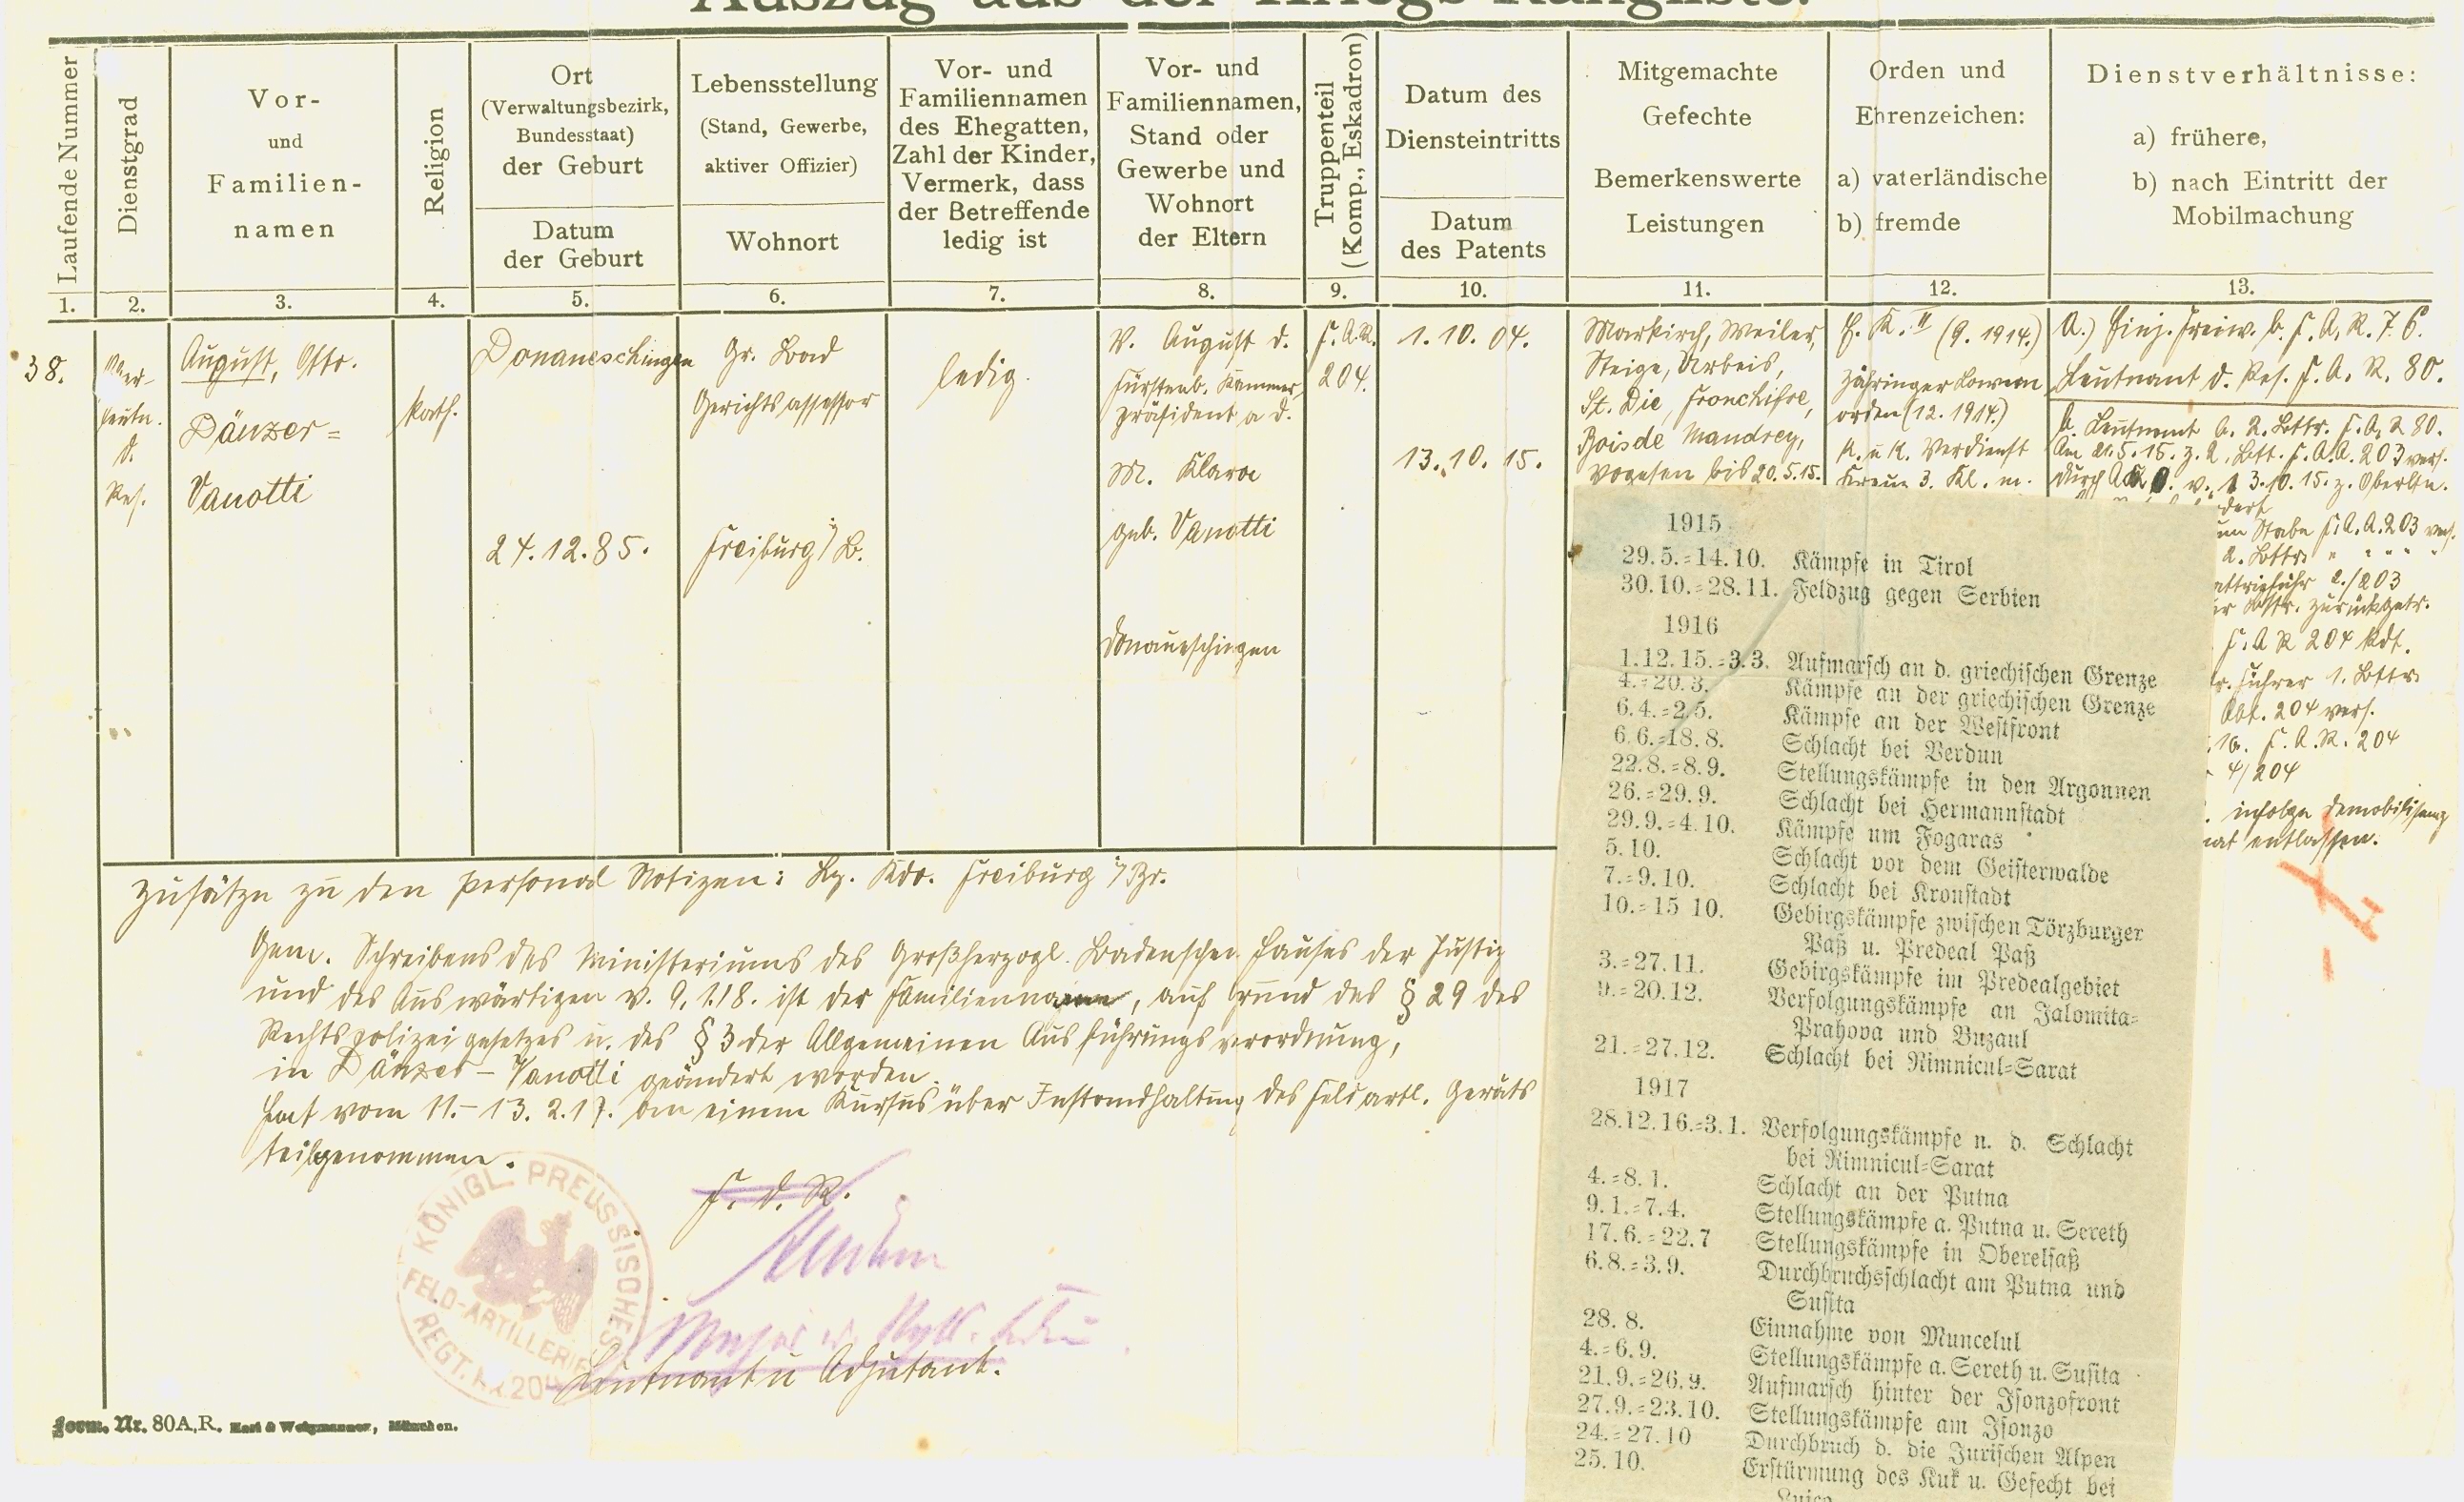 Auszug aus der Kriegs-Rangliste.
Laufende Nummer
Dienstgrad
Vor-
und
Familien-
namen
Religion
Ort
(Verwaltungsbezirk,
Bundesstaat)
der Geburt
Datum
der Geburt
Lebensstellung
(Stand, Gewerbe,
aktiver Offizier)
Wohnort
Vor- und
Familiennamen
des Ehegatten,
Zahl der Kinder,
Vermerk, dass
der Betreffende
ledig ist
Vor- und
Familiennamen,
Stand oder
Gewerbe und
Wohnort
der Eltern
Truppenteil
(Komp., Eskadron)
Datum des
Diensteintritts
Datum
des Patents
Mitgemachte
Gefechte
Bemerkenswerte
Leistungen
Orden und
Ehrenzeichen:
a) vaterländische
b) fremde
Dienstverhältnisse:
a) frühere,
b) nach Eintritt der
Mobilmachung
1. 2. 3. 4. 5. 6. 7. 8. 9. 10. 11. 12. 13.
38.
Ober-
leutn.
d.
Res.
August, Otto.
Dänzer=
Vanotti
Kath.
Donaueschingen
24.12.85.
Gr. Bad
Gerichtsassessor
Freiburg i/B.
ledig.
V. August d.
Fürstenb. Kammer
präsident a D.
M. Klara
geb. Vanotti
Donaueschingen
F.A.R.
204.
1.10.04.
13.10.15.
Markirch, Weiler,
Steige, Urbeis,
St. Die,
Bois de Mandrey,
Vogesen bis 20.5.15.
E.K. II (9.1914.)
Zähringer Löwen
orden (12.1914.)
K. u K. Verdienst
Kreuz 3. Kl. m.
a.) Einj. Freiw. b. F.A.R. 76.
Leutnant d. Res. F.A.R. 80.
b. Leutnant b. 2. Battr. F.A.R 80.
Am 21.5.15. z. 2. Batt. F.A.A. 203 vers.
durch v. 13.10.15. z. Oberltn.
dert
um Stabe F.A.A. 203 vers.
2. Battr. " " " "
2./203
Bttr. zurückgetr.
F.A.R 204 Kdt.
Führer 1. Battr.
Abt. 204 vers.
F.A.R. 204
4/204
infolge Demobilisierung
entlassen.
1915
29.5.=14.10. Kämpfe in Tirol
30.10.=28.11. Feldzug gegen Serbien
1916
1.12.15.=3.3. Aufmarsch an d. griechischen Grenze
4.=20.3. Kämpfe an der griechischen Grenze
6.4.=2.5. Kämpfe an der Westfront
6.6.=18.8. Schlacht bei Verdun
22.8.=8.9. Stellungskämpfe in den Argonnen
26.=29.9. Schlacht bei Hermannstadt
29.9.=4.10. Kämpfe um Fogaras
5.10. Schlacht vor dem Geisterwalde
7.=9.10. Schlacht bei Kronstadt
10.=15 10. Gebirgskämpfe zwischen Törzburger
Paß u. Predeal Paß
3.=27.11. Gebirgskämpfe im Predealgebiet
9.=20.12. Verfolgungskämpfe an Jalomita=
Prahova und Buzaul
21.=27.12. Schlacht bei Rimnicul=Sarat
1917
28.12.16.=3.1. Verfolgungskämpfe n. d. Schlacht
bei Rimnicul=Sarat
4.=8.1. Schlacht an der Putna
9.1.=7.4. Stellungskämpfe a. Putna u. Sereth
17.6.=22.7 Stellungskämpfe in Oberelsaß
6.8.=3.9. Durchbruchsschlacht am Putna und
Susita
28.8. Einnahme von Muncelul
4.=6.9. Stellungskämpfe a. Sereth u. Susita
21.9.=26.9. Aufmarsch hinter der Isonzofront
27.9.=23.10. Stellungskämpfe am Isonzo
24.=27.10 Durchbruch d. die Jurischen Alpen
25.10. Erstürmung des Kuk u. Gefecht bei
Luico
Zusätze zu den Personal Notizen: Bz. Kdo. Freiburg i/Br.
Gem. Schreibens des Ministeriums des Großherzogl. Badenschen Hauses der Justiz
und des Auswärtigen v. 9.1.18. ist der Familienname, auf Grund des § 29 des
Rechtspolizeigesetzes u. des § 3 der Allgemeinen Ausführungsverordnung,
in Dänzer-Vanotti geändert worden.
Hat vom 11.-13.2.17. an einem Kursus über Instandhaltung des Feldartl. Geräts
teilgenommen.
F.d.R.
Leutnant u Adjutant.
KÖNIGL. PREUSSISCHES
FELD-ARTILLERIE
REGT. Nr. 204
Form. Nr. 80A,R.